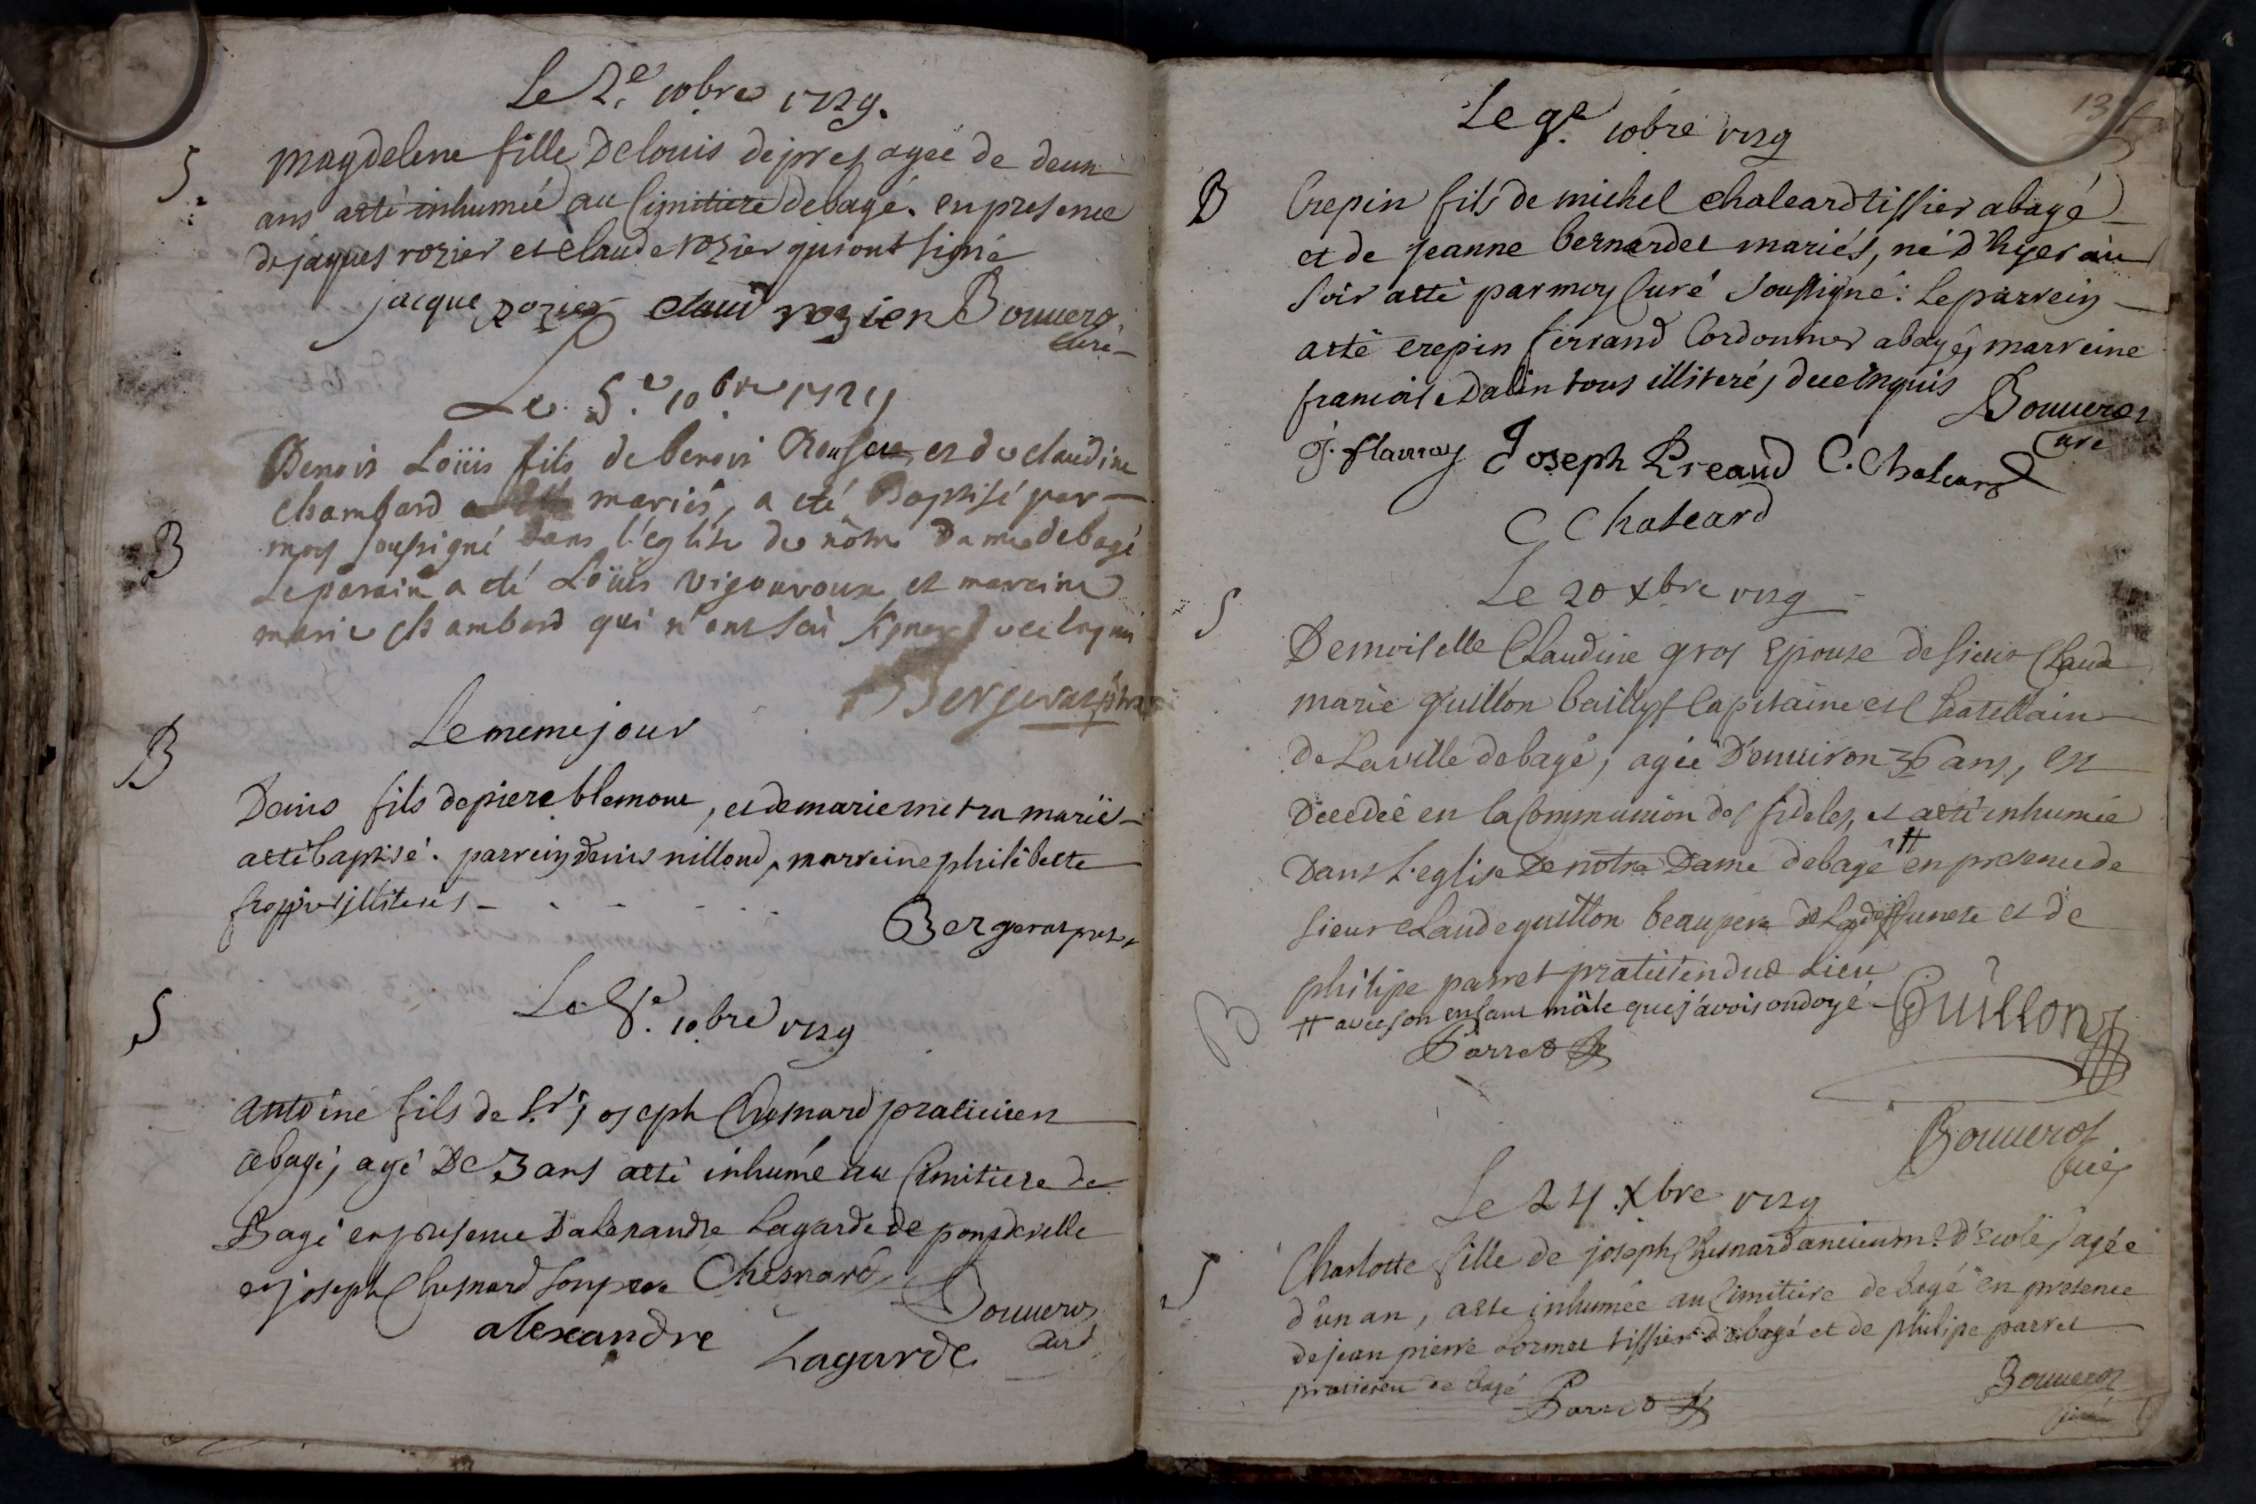 Le 2.e 10bre 1729.
S. magdelene fille De louis depres agee de deux
ans a etè inhumeé au Cimitiere debagé. en presence
de jaques rozier et claude rozier qui ont signé
jacque rozier claud rozier Bouuerot
Curé
Le 5.e 10bre 1729
Benois Loüis fils de benois et de claudine
B chambard mariés, a eté Baptisé par
moy sousigné dans l'église de nôtre Dame debagé
Le parain a eté Loüis vigouroux et maraine
marie chambard qui n'ont sçu signer
Bergerat ptre
Le meme jour
B Denis fils de piere blemont, et de marie metra mariés
a eté baptisé. parrein denis nillond, marreine philibette
illiterés
Bergerat pretre
Le 8.e 10bre 1729
S
antoine fils de Sr. joseph Chesnard praticien
abagé, agé De 3 ans a eté inhumé au Cimitiere de
Bagé en presence Dalexandre Lagarde de pondevelle
et joseph Chesnard son pere Chesnard Bouuerot
alexandre Lagarde Curé
13
Le 9.e 10bre 1729
B Crepin fils de michel chaleard tissier abagé
et de jeanne bernardet mariés, né d'hyer au
soir a eté par moy Curé soussigné: le parrein
a eté crepin ferrand Cordonnier abagé, marreine
francoise Dalin tous illiterés de ce enquis Bouuerot
Curé
J. flamay Joseph Preaud C. Chaleard
C Chaleard
Le 20 Xbre 1729
S
Demoiselle Claudine gros Epouse de sieur Claude
marie guillon baillyf Capitaine et Chatellain
de La ville de bagé, agée D'enuiron 36 ans, est
Décedée en la Communion des fideles, et a eté inhumée
Dans L'eglise De notre Dame debagé ++ en presence de
sieur claude guillon beaupere de la deffuncte et de
philipe parret praticien dud Lieu
B ++ avec son enfant mâle que j'avois ondoyé Guillon
Parret
Bouuerot
Curé
Le 24 Xbre 1729
S Charlotte fille de joseph Chesnard ancien m.e d'Ecole, agée
d'un an, a eté inhumée au Cimitiere de bagé en presence
de jean pierre Cormet tissier de bagé et de philipe parret
praticien de bagé Parret Bouuerot
Curé